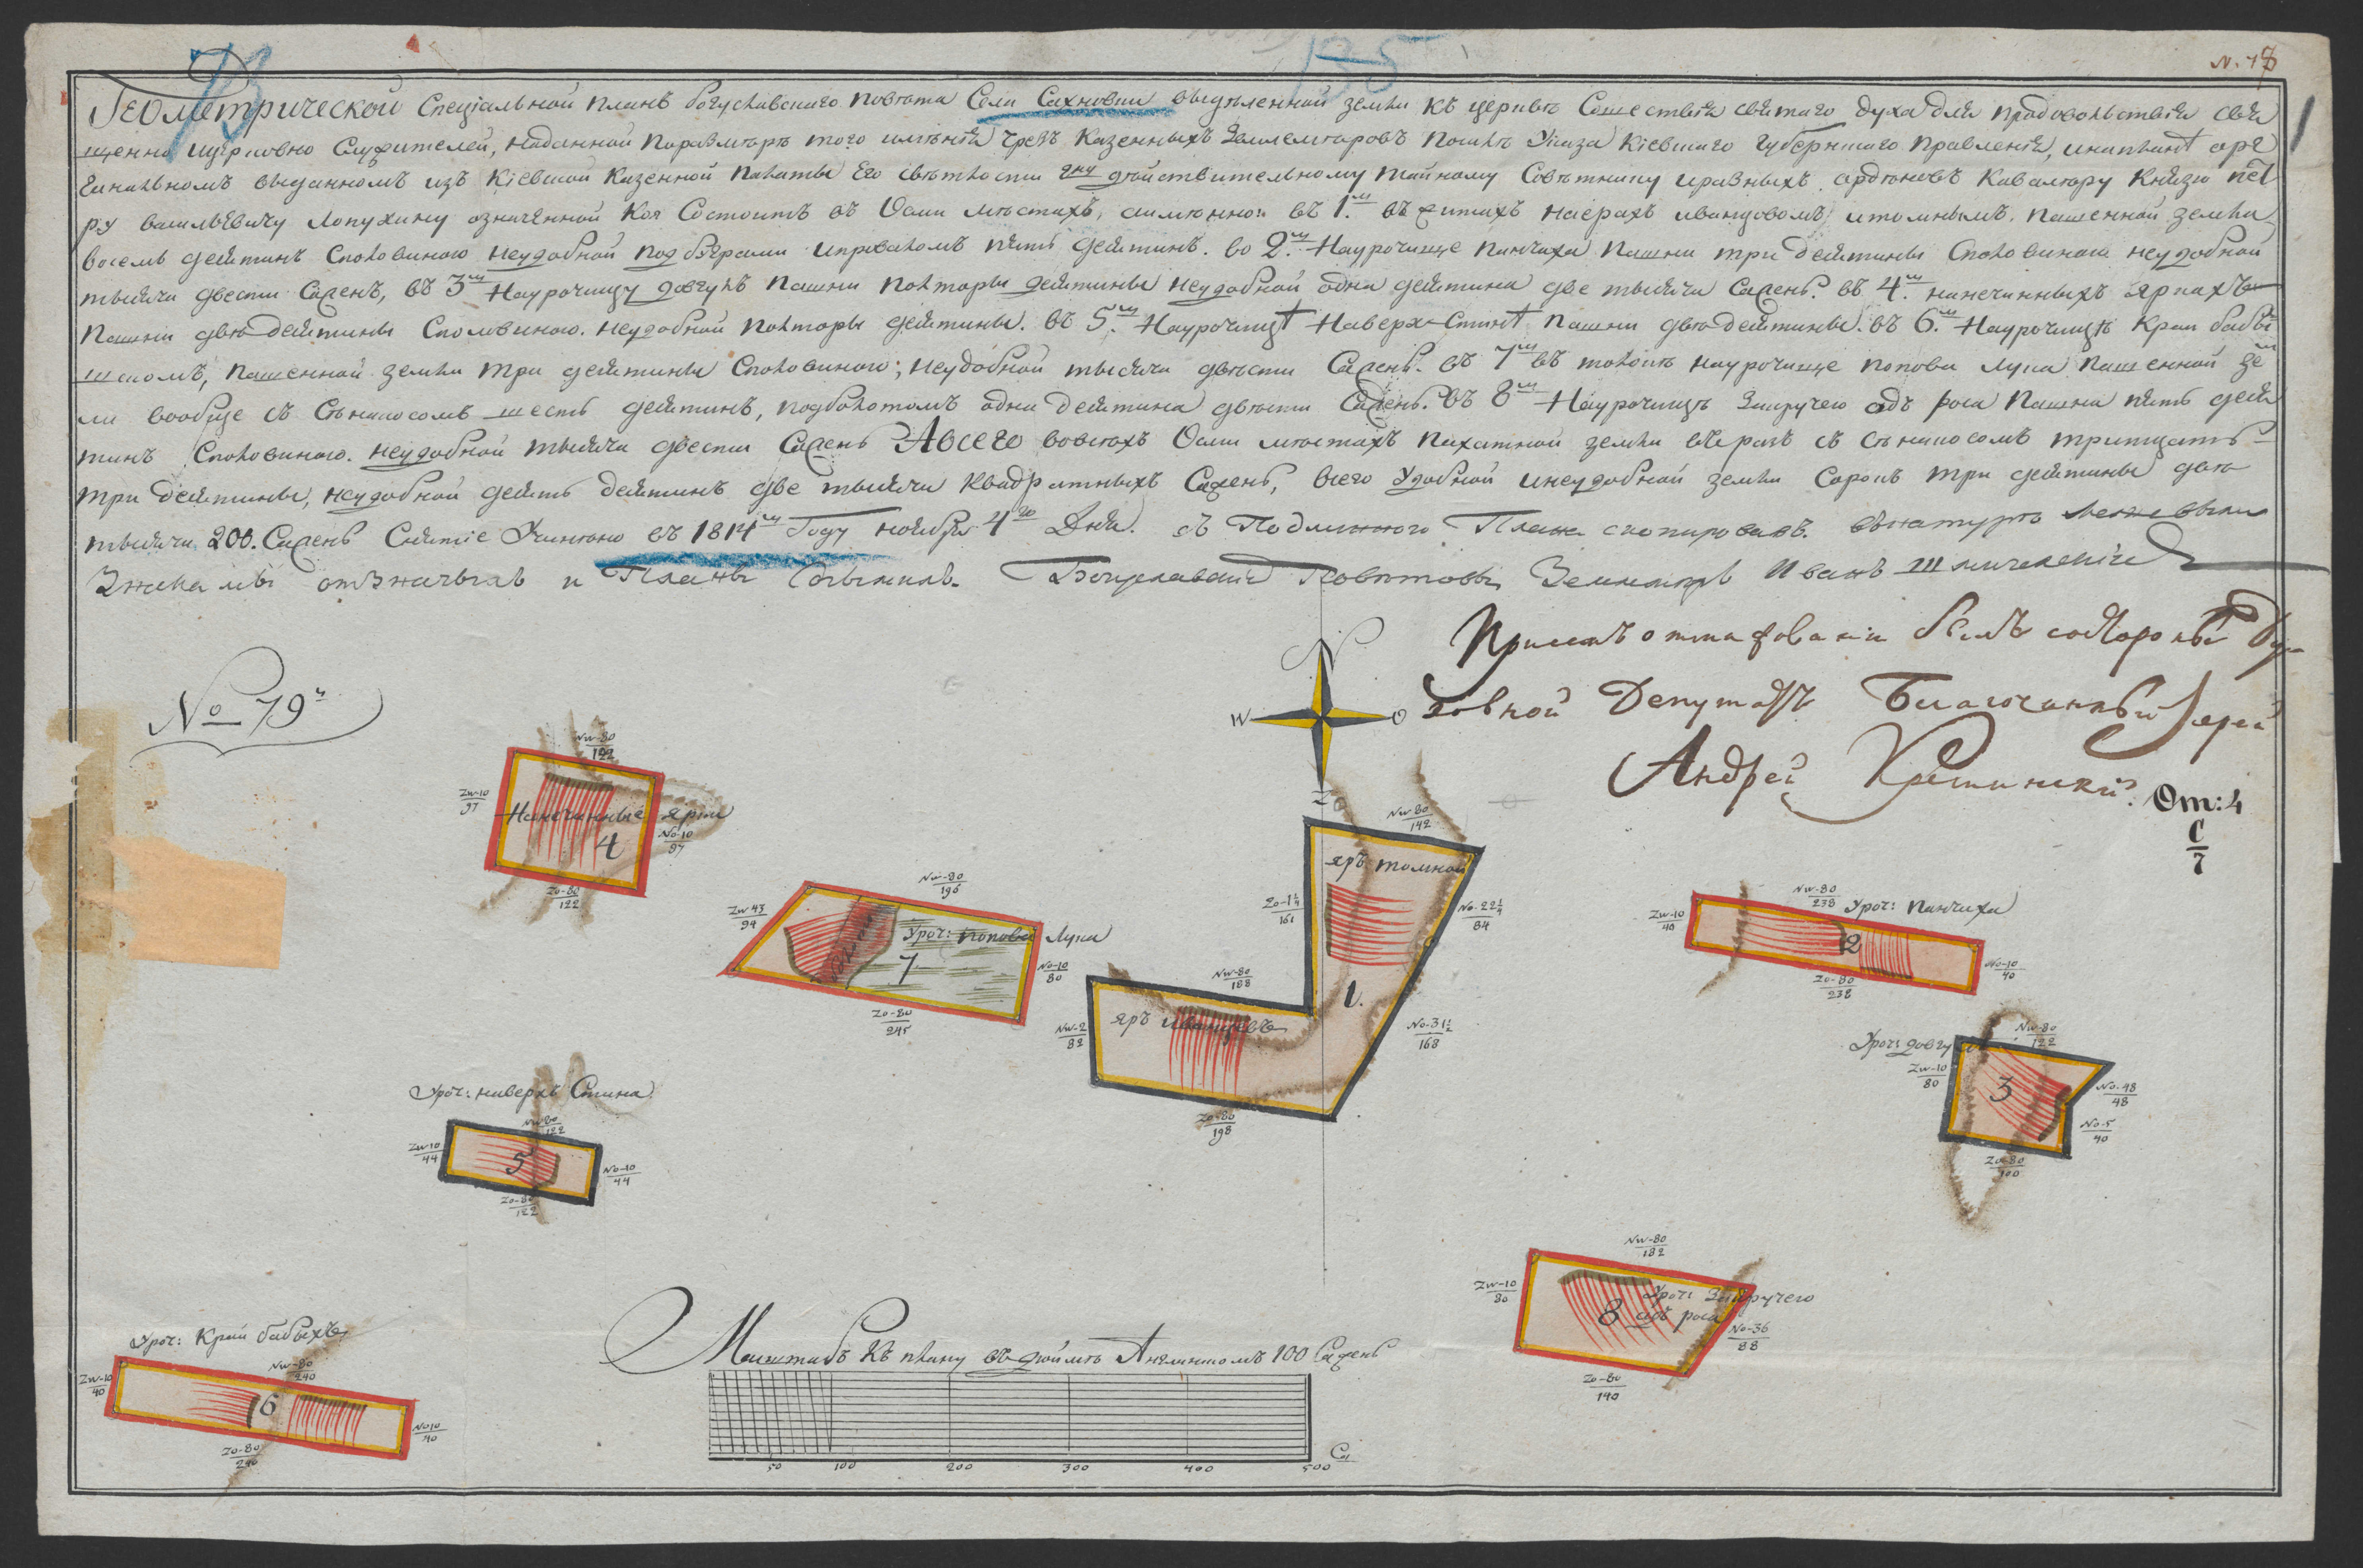 135
N. 18
Геометрической Специальной планъ богуславского повѣта Села Сахновки выдѣленной земли къ церквѣ Сошествія святаго духа для продовольствія свя
щенно церковно Служителей, наданной поразмѣрѣ того имѣнія чрезъ казенныхъ Землемѣровъ посилѣ Указа Кіевского Губернского Правленія, инаплант оре
гинальномъ выданномъ изъ Кіевской Казенной палаты Его свѣтлости гну дѣйствительному тайному Совѣтнику иразныхъ ордѣновъ Кавалѣру Князю пет
ру васильевичу Лопухину означенной Коя Состоитъ въ Осми мѣстахъ, аимѣнно: въ 1м въ наерахъ иванцовомъ итомнымъ, пашенной земли
восемь десятинъ Споловиною неудобной под бѣрами ипроваломъ пять десятинъ. во 2м Наурочище панчиха пашни три десятины Сполвиною неудобной
тысяча двести Саженъ, въ 3м Наурочищу довгунъ пашни полторы десятины неудобной одна десятина две тысячи Саженъ. въ 4м нанечинныхъ яркахъ
пашни двѣ десятины Сполвиною. неудобной полторы десятины. въ 5м Наурочищѣ Наверхъ Стинѣ пашни двѣ десятины. въ 6м Наурочищѣ Краи бабы
шкомъ, пашенной земли три десятины Споловиною; неудобной тысяча двѣсти Саженъ. въ 7м въ наурочище попова лука пашенной зе
мли вообще съ Сѣнокосомъ шесть десятинъ, подболотомъ одна десятина двѣсти Саженъ. въ 8м Наурочищѣ Закручего адъ роса пашни пять деся
тинъ Споловиною. неудобной тысяча двести Саженъ Авсего вовсѣхъ Осми мѣстахъ пахатной земли вкрапъ съ Сѣнокосомъ тритцать
три десятины, неудобной девять десятинъ две тысячи квадратныхъ Саженъ, всего удобной инеудобной земли Сорокъ три десятины двѣ
тысячи 200. Саженъ Снятіе Учинѣно въ 1814м Году ноября 4го Дня. съ Подлинного Плана скопировалъ. внатурѣ межевыми
Знаками отзначылъ и Планъ Богуславскій Повѣтовый Землемѣръ Иванъ
При былъ состороны Ду
ховной Депутатъ Благочинный Іерей
Андрей
От: 4
С
7
No 79й
N
W
O
Z
Nw-80
122
Zw-10
97
Нанечинные ярки
4
No-10
97
Zo-80
122
Nw-80
196
Zw 43
94
Уроч: попова Лука
7
No-10
80
Zo-80
245
Nw-80
142
яръ томной
Zo-1¼
161
No-22¼
84
Nw-80
188
1.
яръ иванцовъ
Nw-2
82
No-31½
168
Zo-80
198
Nw-80
238
Уроч: панчиха
Zw-10
40
2
No-10
40
Zo-80
238
Уроч: довгун
Nw-80
122
Zw-10
80
3
No-48
48
No-5
40
Zo-80
100
Уроч: наверхъ Стина
Nw-80
122
Zw-10
44
5
No-10
44
Zo-80
122
Nw-80
182
Zw-10
80
Уроч: Закручего
8 адъ роса
No-36
88
Zo-80
140
Уроч: Край бабыхъ
Nw-80
240
Zw-10
40
6
No 10
40
Zo-80
240
Масштабъ Къ плану въ дюймѣ Англинскомъ 100 Саженъ
50 100 200 300 400 500 Са